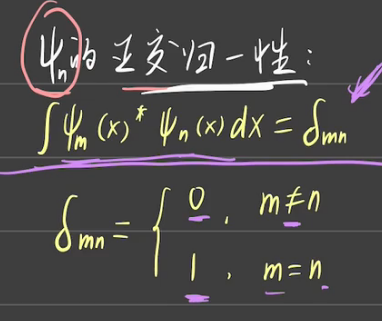 ψn的正交归一性:
∫ψm(x)* ψn(x)dx = δmn
δmn = { 0, m≠n
1, m=n